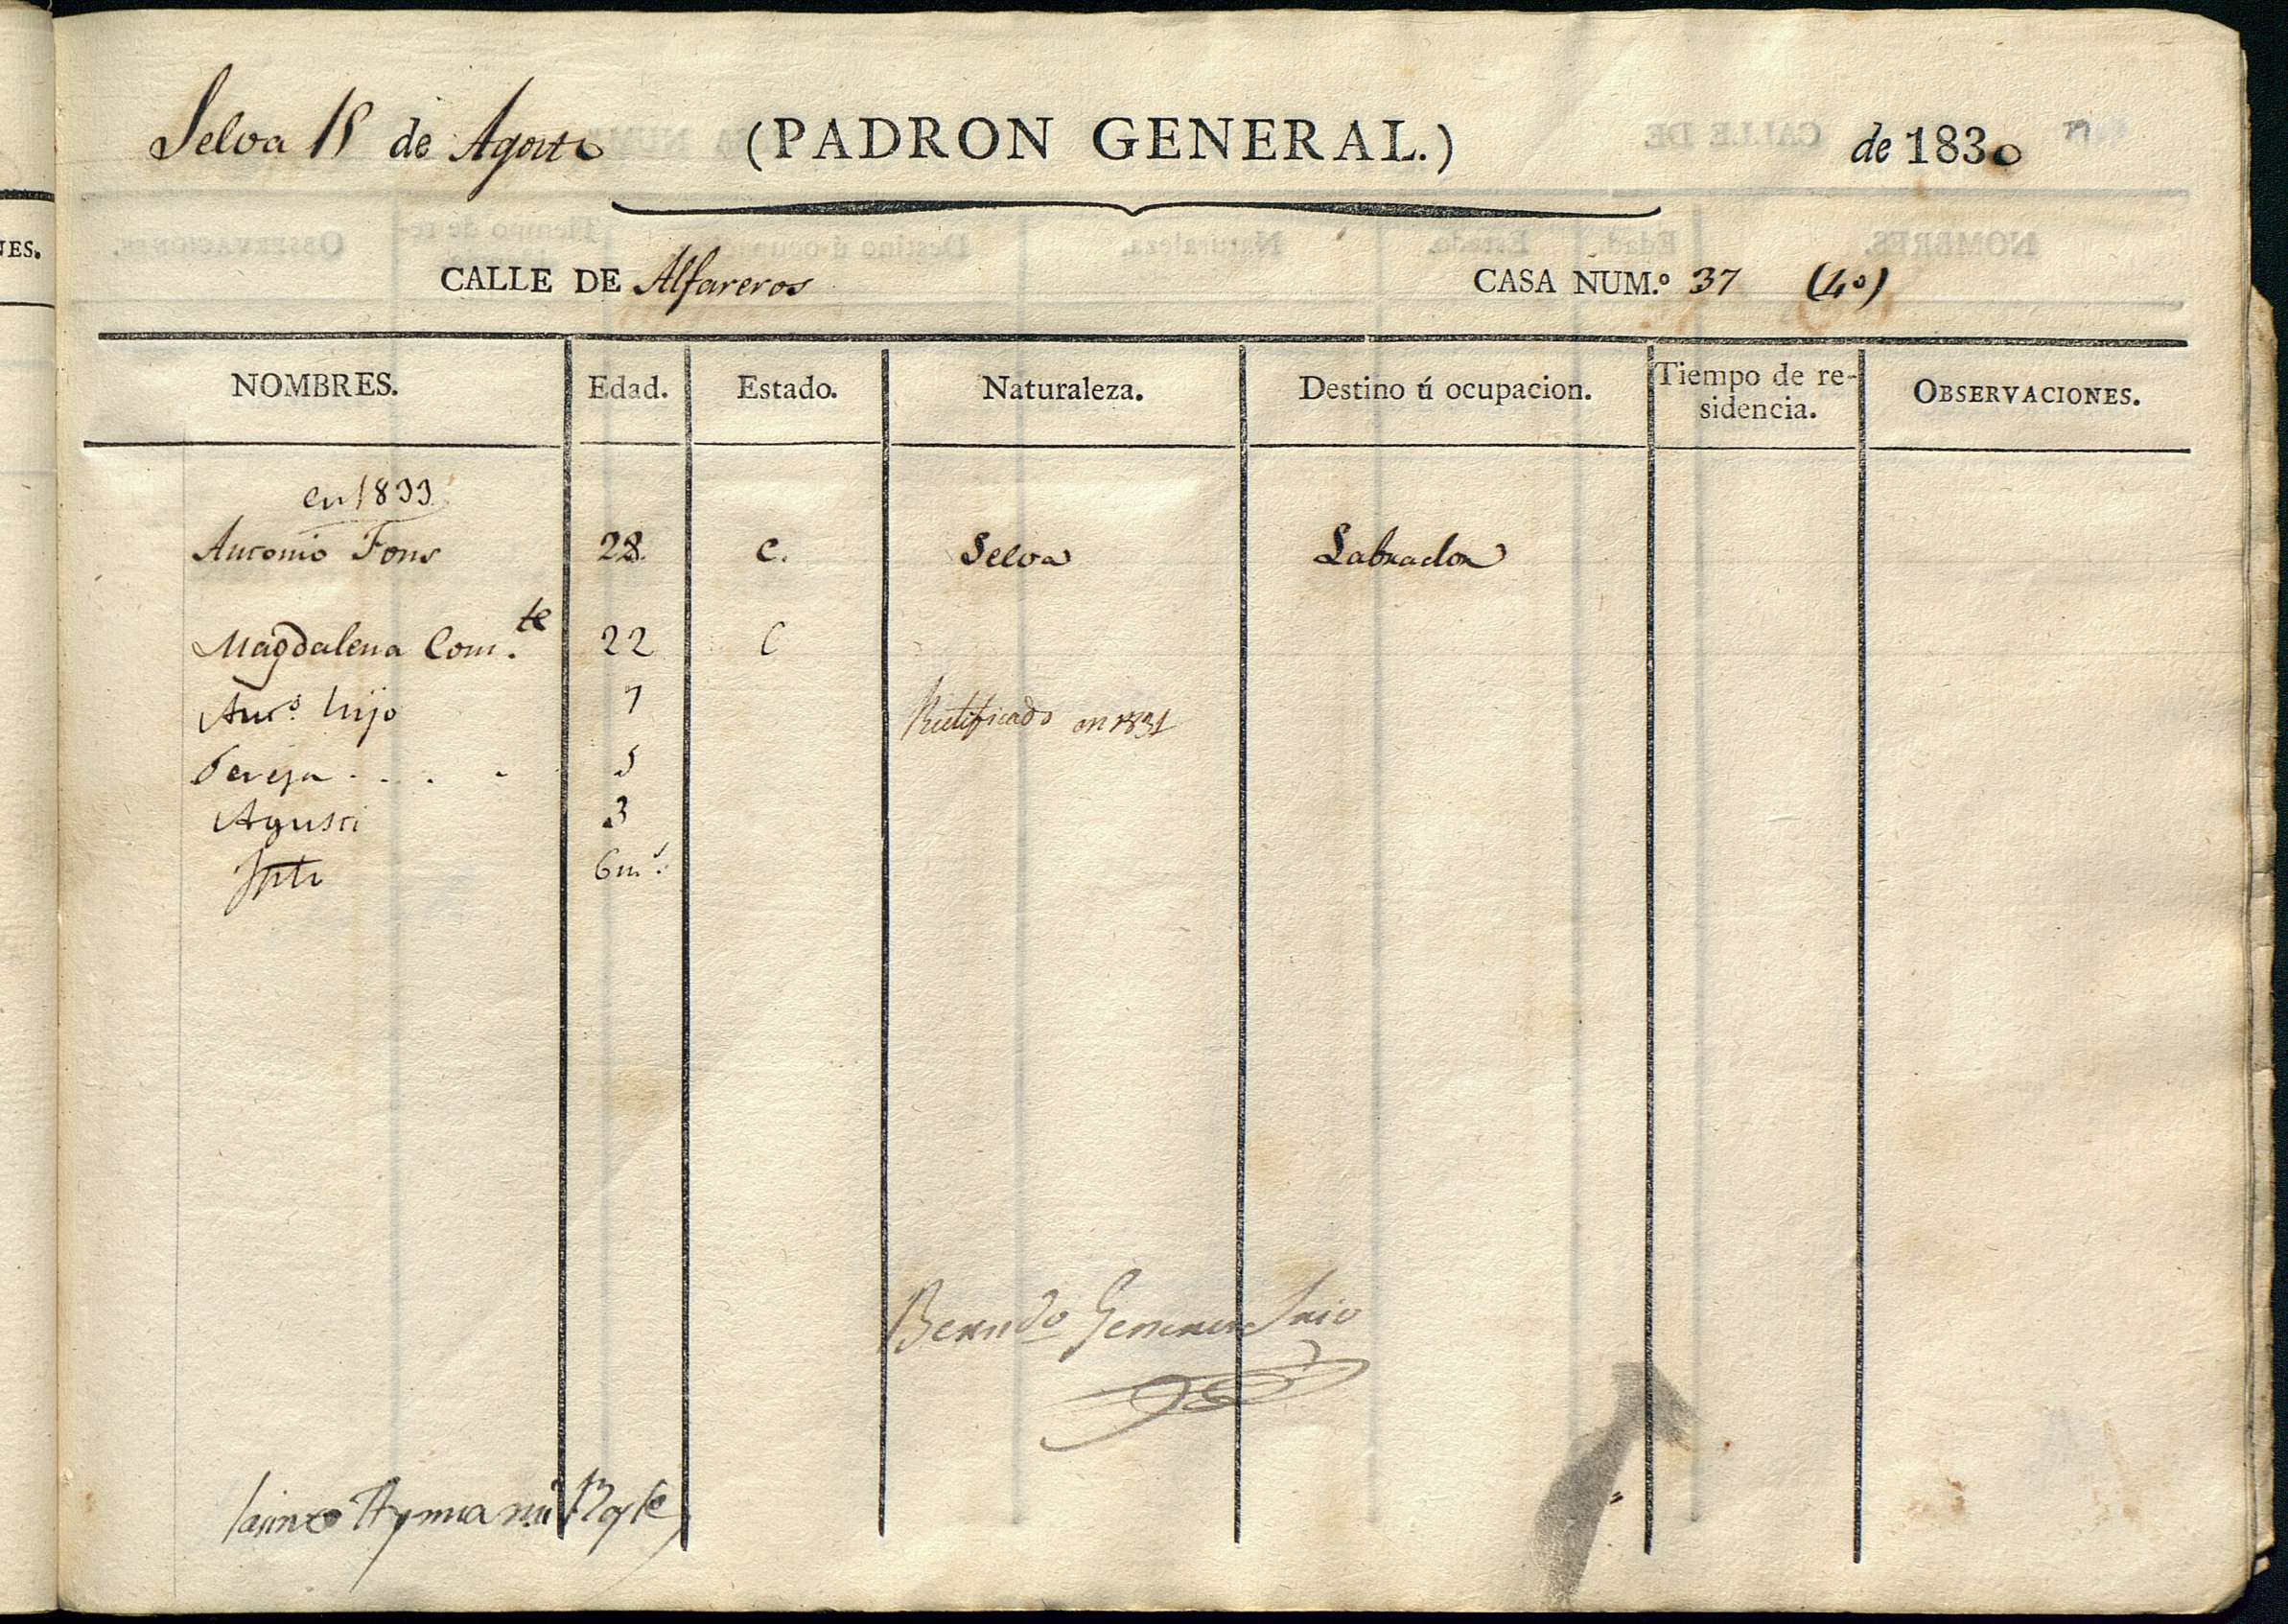 NES.
Selva 15 de Agosto (PADRON GENERAL.) de 1830
CALLE DE Alfareros CASA NUM.º 37 (40)
NOMBRES. Edad. Estado. Naturaleza. Destino ú ocupacion. Tiempo de re-sidencia. OBSERVACIONES.
en 1833
Antonio Fons 28. C. Selva Labrador
Magdalena Com.te 22 C
Ant.º hijo 7 Rectificado en 1831
Teresa . . . . 5
Agusti 3
6 m.s
Berndo Srio
Jaime Aymami Bayle